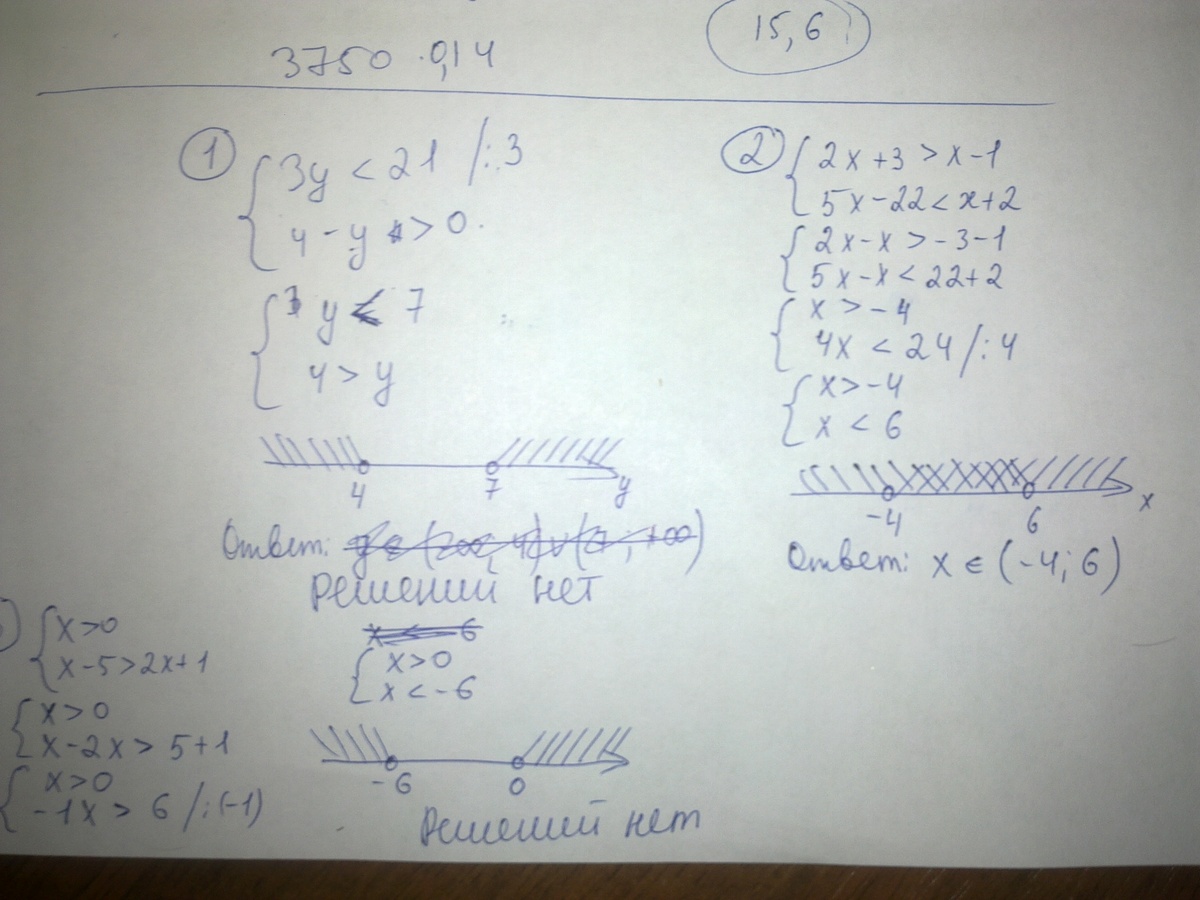 15,6
3750 · 0,14
1
3y < 21 /:3
4 - y > 0.
y < 7
4 > y
4 7 y
Ответ:
Решений нет
2
2x + 3 > x - 1
5x - 22 < x + 2
2x - x > -3 - 1
5x - x < 22 + 2
x > -4
4x < 24 /:4
x > -4
x < 6
-4 6 x
Ответ: x ∈ (-4; 6)
x > 0
x - 5 > 2x + 1
x > 0
x - 2x > 5 + 1
x > 0
-1x > 6 /:(-1)
x > 0
x < -6
-6 0
Решений нет